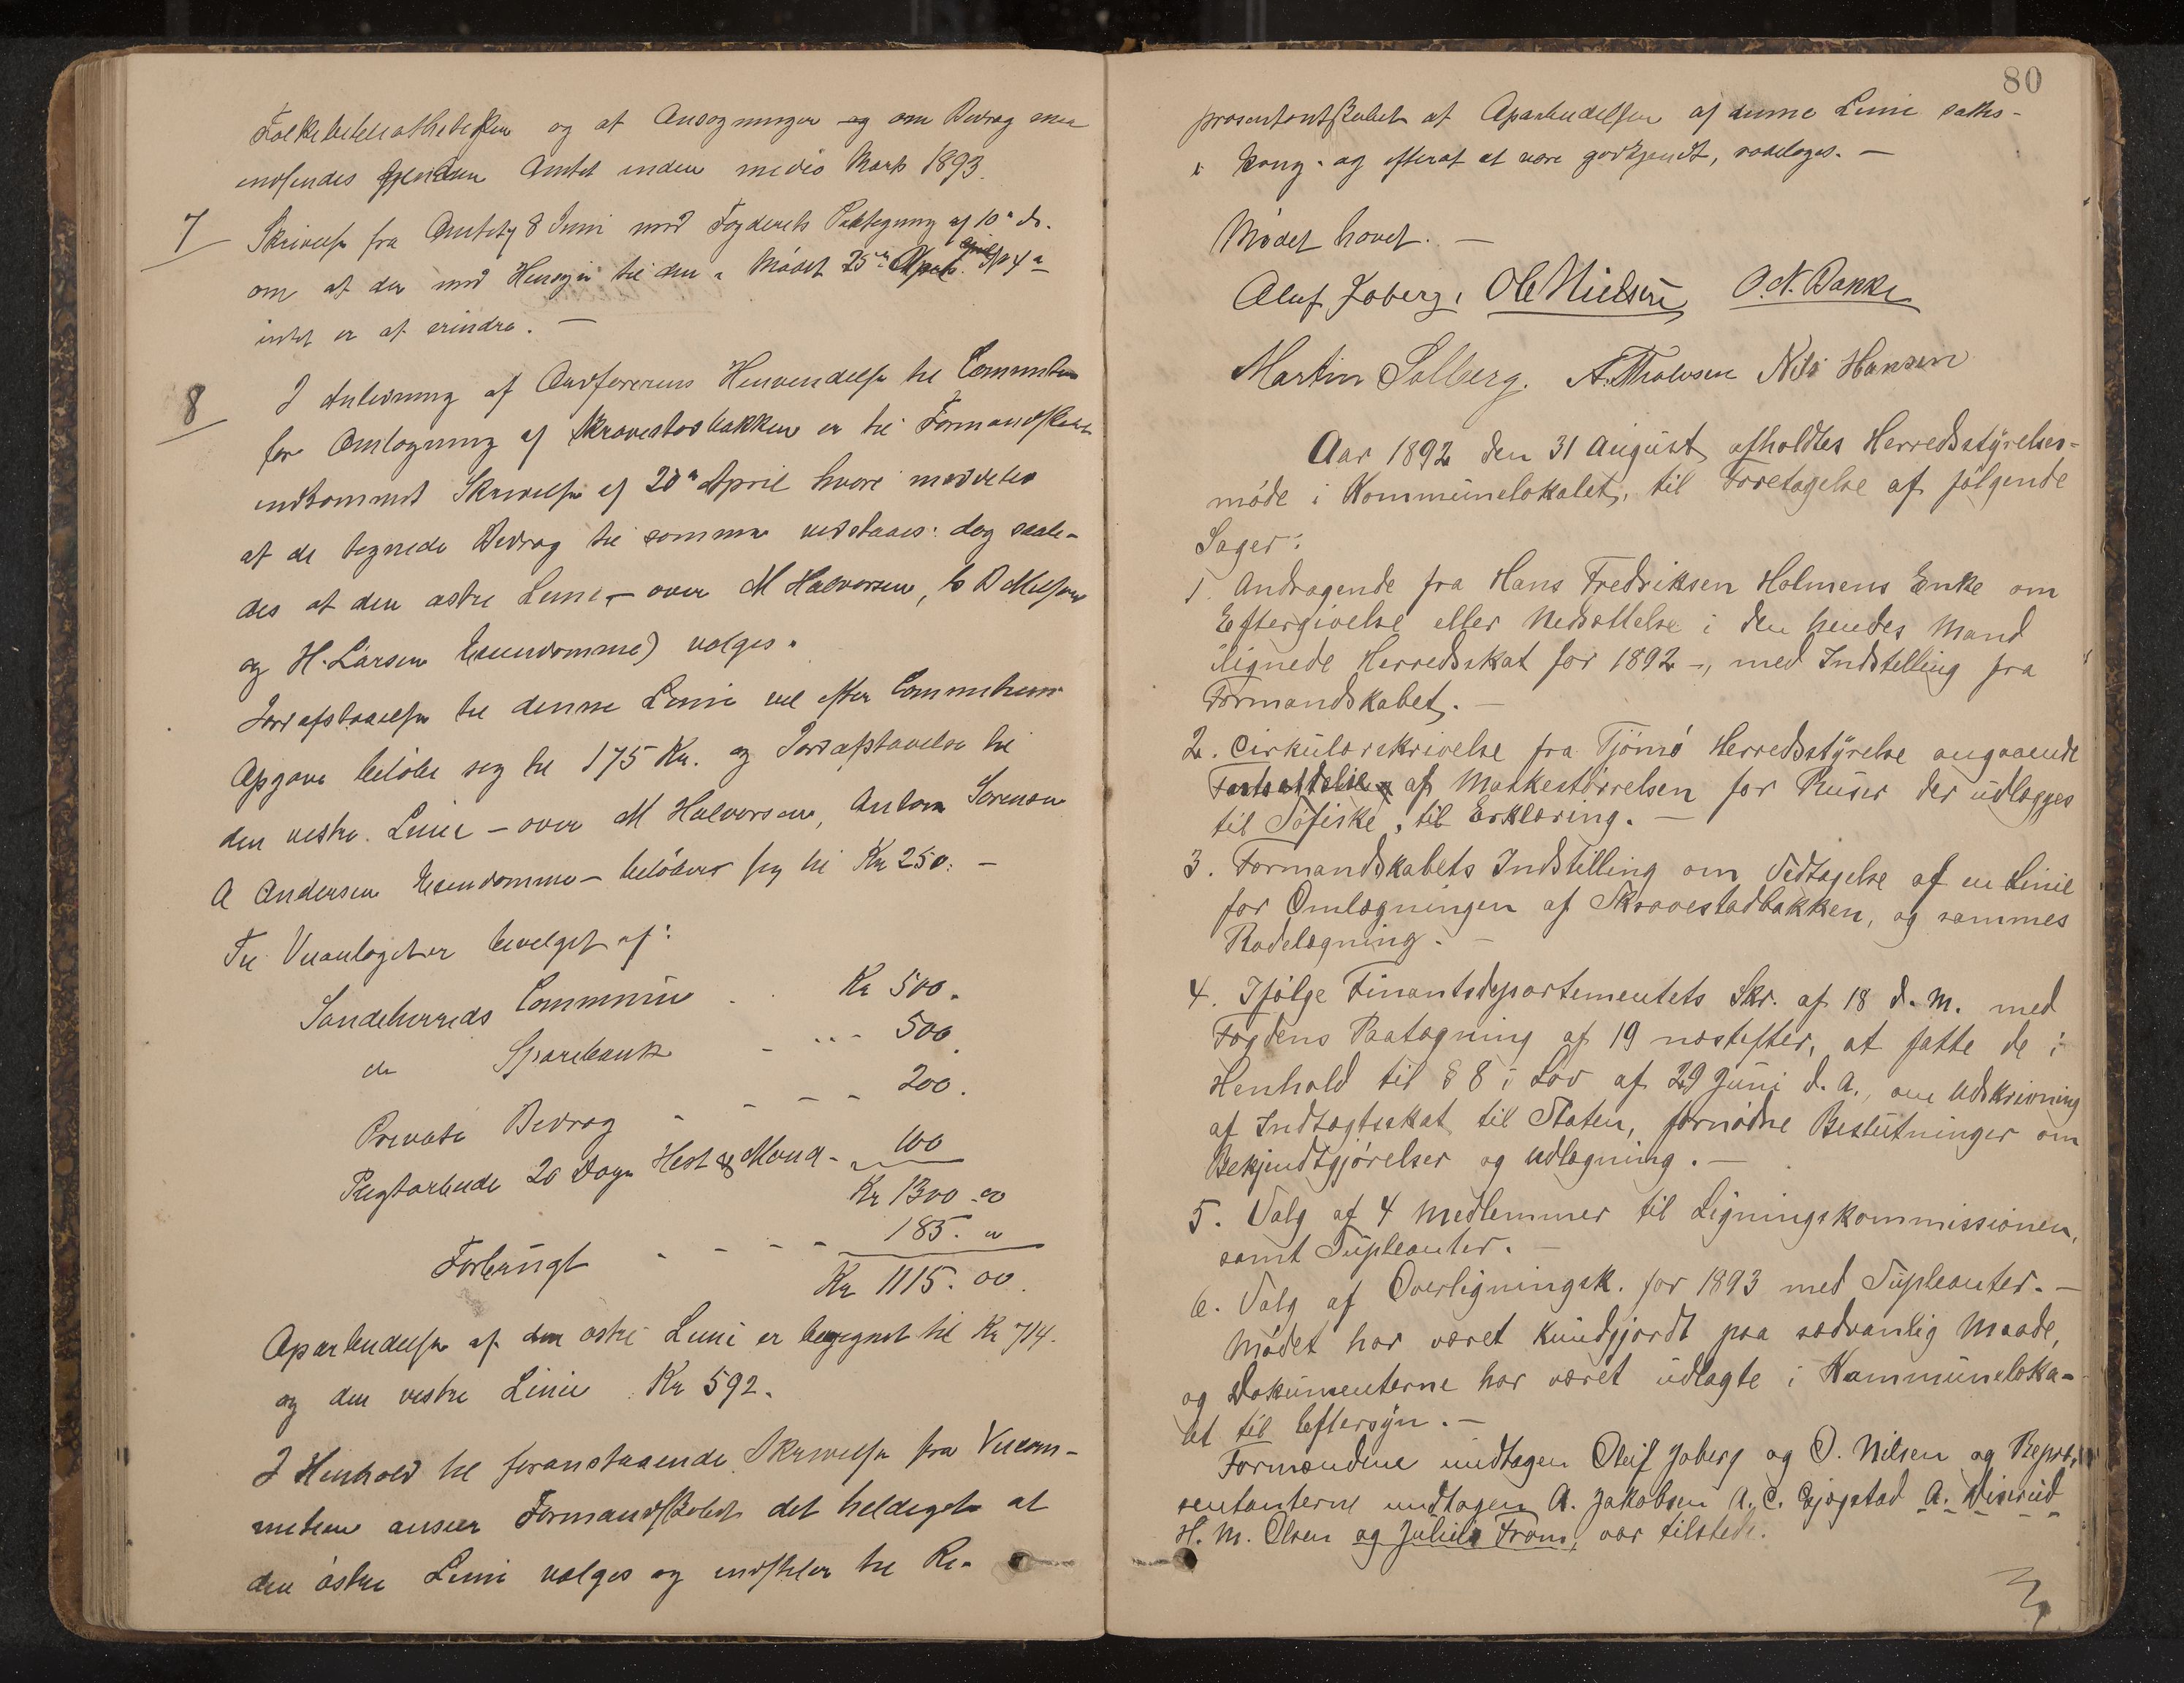 Folkebibliothekeker og at Ansøgninger og om Bidrag maa
indsendes gjennem Amtet inden medio Marts 1893.
7 Skrivelse fra Amtet af 8 Juni med Fogderiets Paategning af 10de ds.
om at der med Hensyn til den i Mødet 25de April Sp 4de
intet er at erindre. —
8 I Anledning af Ordførerens Henvendelse til Committeen
for Omlægning af Skravestadbakken er til Formandskabet
indkommet Skrivelse af 20de April hvori meddeles
at de tegnede Bidrag til samme vedstaaes: dog saale-
des at den østre Linie — over M Halvorsen, D Nilsens
og H. Larsens Eiendomme) vælges.
Jordafstaaelse til denne Linie vil efter Committeens
Opgave beløbe sig til 175 Kr. og Jordafstaaelse til
den vestre Linie — over M Halvorsens, Anton Sørensen
A Andersens Eiendomme — beløber sig til Kr 250. —
Til Veianlæget er bevilget af:
Sandeherreds Commune . . Kr 500.
do Sparebank - . . - 500.
Private Bidrag - - - - 200.
Pligtarbeide 20 Dage Hest & Mand - 100
Kr 1300.00
Forbrugt - - - - 185. "
Kr 1115.00.
Oparbeidelse af den østre Linie er beregnet til Kr 714.
og den vestre Linie Kr 592.
I Henhold til foranstaaende Skrivelse fra Veicom-
miteen anseer Formandskabet det heldigst at
den østre Linie vælges og indstiller til Re-
80
præsentantskabet at Oparbeidelsen af denne Linie sættes
i Gang og efterat at være godkjendt, rodelægges. —
Mødet hævet. —
Oluf Joberg, Ole Nielsen, O. N. Bakke
Martin Solberg. A. Tholvsen Nils Hansen
Aar 1892 den 31 August afholdtes Herredsstyrelses-
møde i Kommunelokalet, til Foretagelse af følgende
Sager:
1. Andragende fra Hans Fredriksen Holmens Enke om
Eftergivelse eller Nedsættelse i den hendes Mand
ilignede Herredsskat for 1892 —, med Indstilling fra
Formandskabet. —
2. Cirkulærskrivelse fra Tjømø Herredsstyrelse angaaende
Fastsættelse af Maskestørrelsen for Ruser der udlægges
til Søfiske, til Erklæring. —
3. Formandskabets Indstilling om Vedtagelse af en Linie
for Omlægningen af Skravestadbakken, og sammes
Rodelægning. —
4. Ifølge Finantsdepartementets Skr. af 18 d. M. med
Fogdens Paategning af 19 næstefter, at fatte de i
Henhold til § 8 i Lov af 29 Juni d. A., om Udskrivning
af Indtægtsskat til Staten, fornødne Beslutninger om
Bekjendtgjørelser og Udlægning. —
5. Valg af 4 Medlemmer til Ligningskommissionen,
samt Supleanter. —
6. Valg af Overligningsk. for 1893 med Supleanter. —
Mødet har været kundgjordt paa sædvanlig Maade,
og Dokumenterne har været udlagte i Kommuneloka-
let til Eftersyn. —
Formændene undtagen Oluf Joberg og O. Nilsen og Repræ-
sentanterne undtagen A. Jakobsen A. C. Gjøgstad A. Virerud
H. M. Olsen og Julius Fram, var tilstede.